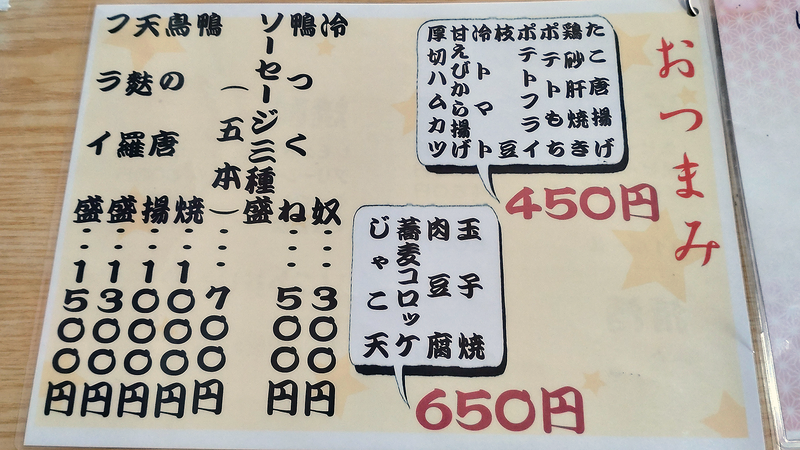 おつまみ
たこ唐揚げ
鶏砂肝焼き
ポテトもち
ポテトフライ
枝豆
冷トマト
甘えびから揚げ
厚切ハムカツ
450円
玉子焼
肉豆腐
蕎麦コロッケ
じゃこ天
650円
冷奴…300円
鴨つくね…500円
ソーセージ三種盛
（五本）…700円
鴨焼…1000円
鳥の唐揚…1000円
天麩羅盛…1300円
フライ盛…1500円